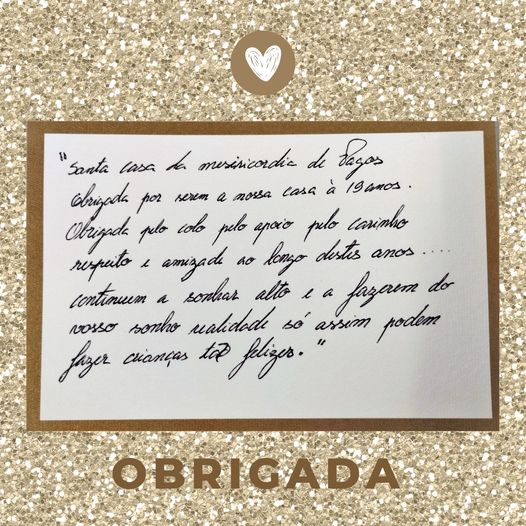 "Santa casa da mesiricordia de Pagos
Obrigada por serem a nossa casa à 19 anos.
Obrigada pelo colo pelo apoio pelo carinho
respeito e amizade ao longo destes anos....
continuem a sonhar alto e a fazerem do
vosso sonho realidade só assim podem
fazer crianças tão felizes."
OBRIGADA